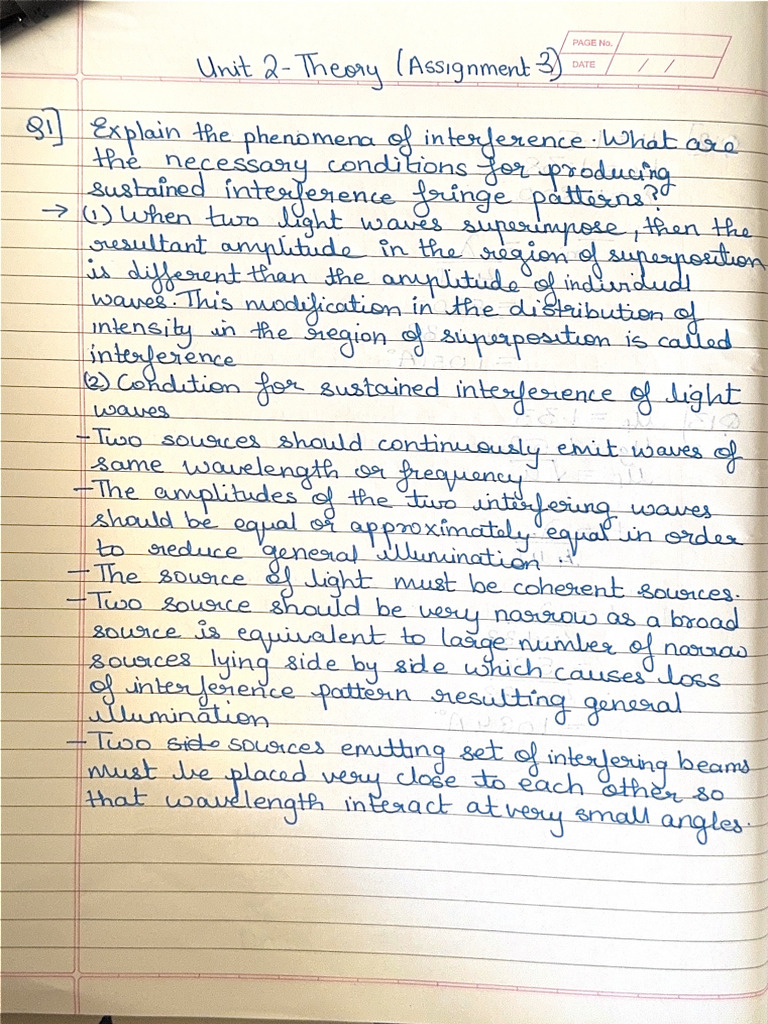 PAGE No.
DATE / /
Unit 2 - Theory (Assignment 3)
Q1] Explain the phenomena of interference. What are
the necessary conditions for producing
sustained interference fringe patterns?
→ (1) When two light waves superimpose, then the
resultant amplitude in the region of superposition
is different than the amplitude of individual
waves. This modification in the distribution of
intensity in the region of superposition is called
interference
(2) Condition for sustained interference of light
waves
- Two sources should continuously emit waves of
same wavelength or frequency
- The amplitudes of the two interfering waves
should be equal or approximately equal in order
to reduce general illumination.
- The source of light must be coherent sources.
- Two source should be very narrow as a broad
source is equivalent to large number of narrow
sources lying side by side which causes loss
of interference pattern resulting general
illumination
- Two side sources emitting set of interfering beams
must be placed very close to each other so
that wavelength interact at very small angles.